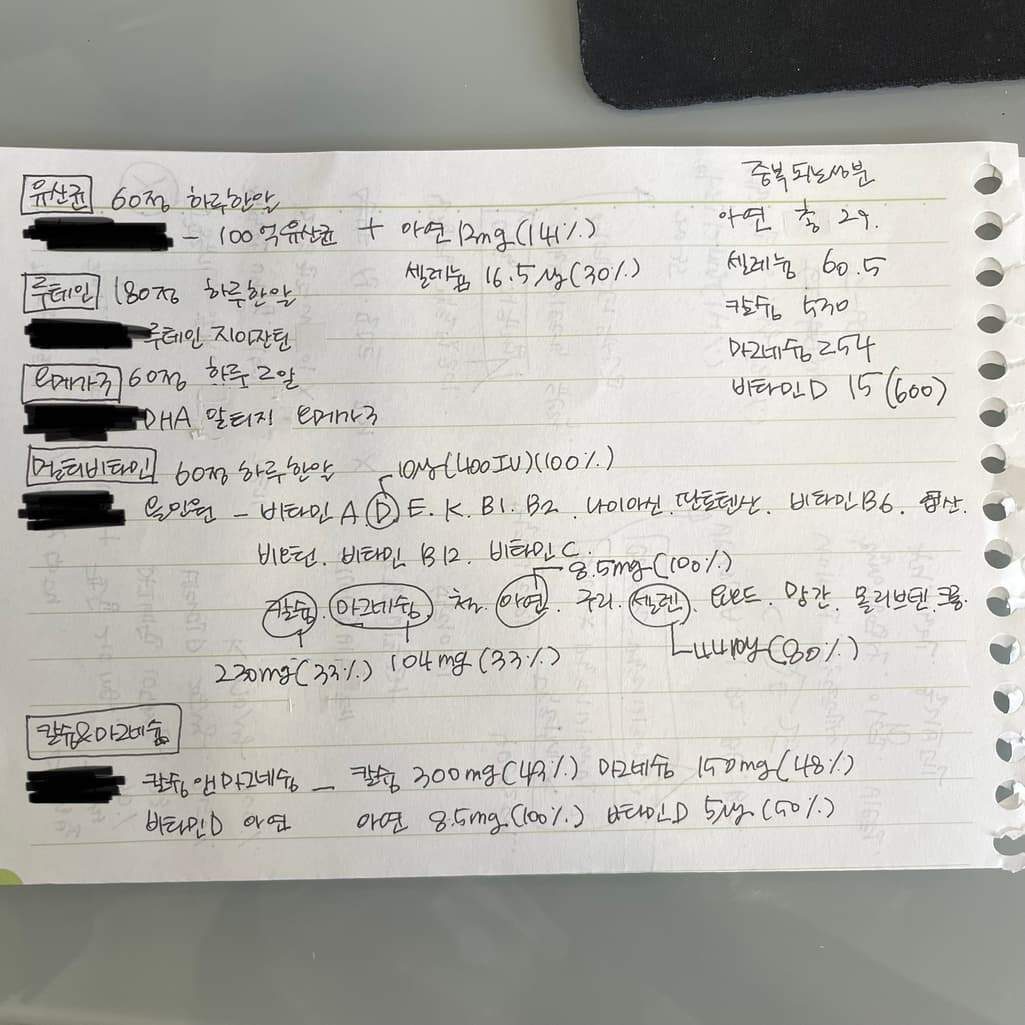 유산균 60정 하루한알
- 100억유산균 + 아연 12mg(141%)
셀레늄 16.5μg(30%)
루테인 180정 하루한알
루테인 지아잔틴
오메가3 60정 하루 2알
DHA 알티지 오메가3
멀티비타민 60정 하루한알
10μg(400IU)(100%)
올인원 - 비타민 A. D. E. K. B1. B2. 나이아신. 판토텐산. 비타민B6. 엽산.
비오틴. 비타민 B12. 비타민C.
8.5mg(100%)
칼슘. 마그네슘. 철. 아연. 구리. 셀렌. 요오드. 망간. 몰리브덴. 크롬.
230mg(33%) 104mg(33%)
44μg(80%)
칼슘&마그네슘
칼슘앤마그네슘 - 칼슘 300mg(43%) 마그네슘 150mg(48%)
비타민D 아연 아연 8.5mg(100%) 비타민D 5μg(50%)
중복되는성분
아연 총 29.
셀레늄 60.5
칼슘 530
마그네슘 254
비타민D 15(600)